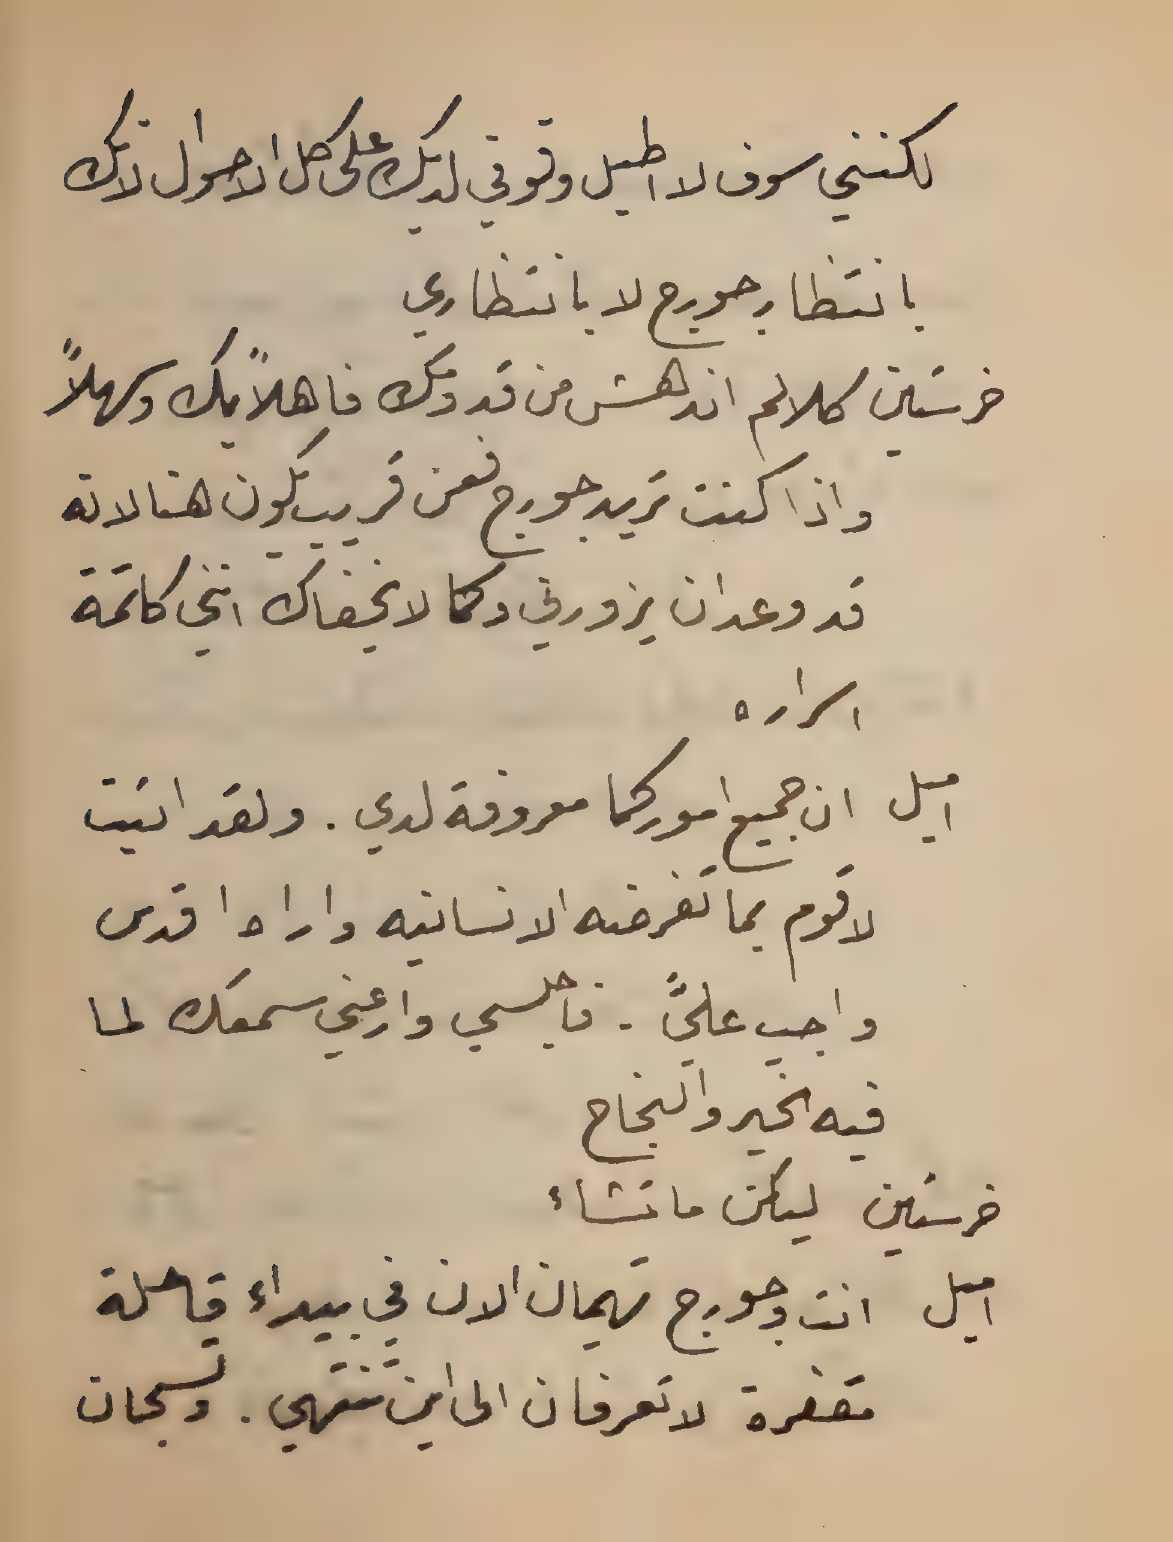 لكنني سوف لا اطيل وقوفي لديك على كل الاحوال لانك
بانتظار جورج لا بانتظاري
خرستين كلا لم اندهش من قدومك فاهلاً بك وسهلاً
واذا كنت تريد جورج فعن قريب يكون هنا لانه
قد وعد ان يزورني وكما لا يخفاك انني كاتمة
اسراره
اميل ان جميع اموركما معروفة لدي . ولقد اتيت
لاقوم بما تفرضه الانسانيه واراه اقدس
واجب عليَّ . فاجلسي وارعني سمعك لما
فيه الخير والنجاح
خرستين ليكن ما تشاء
اميل انت وجورج تهيمان الان في بيداء قاحلة
مقفرة لا تعرفان الى اين تنتهي . وتسبحان